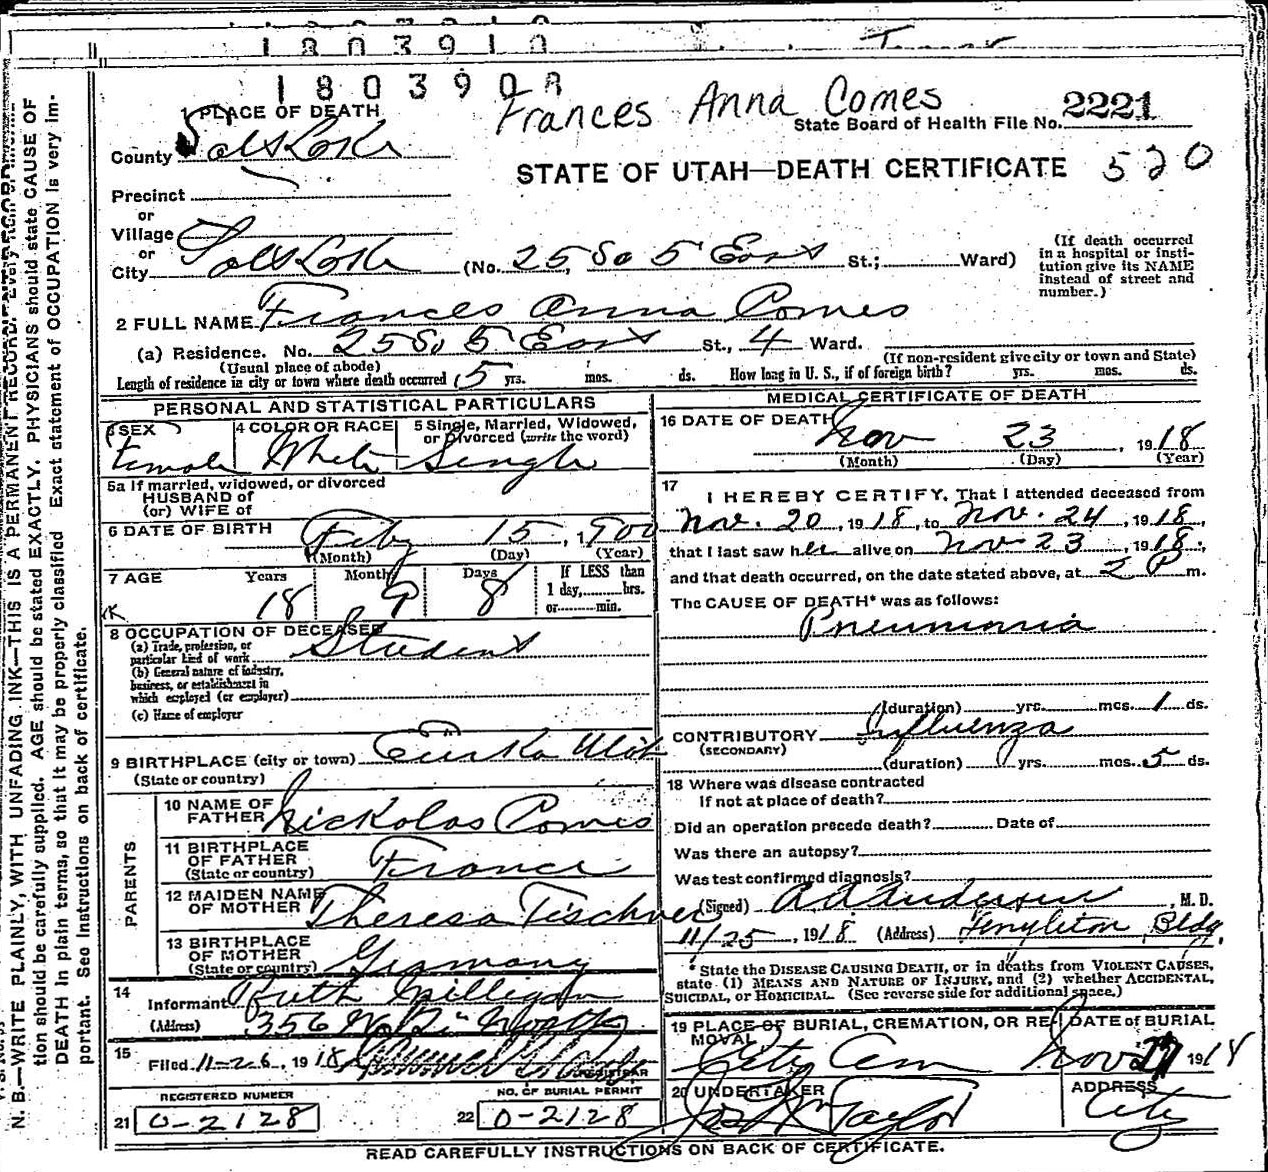 1803910
1803908
Frances Anna Comes
State Board of Health File No. 2221
1 PLACE OF DEATH
County Salt Lake
STATE OF UTAH—DEATH CERTIFICATE 520
Precinct
or
Village
or
City Salt Lake (No. 25 So 5 East St.; Ward)
(If death occurred in a hospital or insti-
tution give its NAME
instead of street and
number.)
2 FULL NAME Frances Anna Comes
(a) Residence. No. 25 So 5 East St., 4 Ward.
(Usual place of abode) (If non-resident give city or town and State)
Length of residence in city or town where death occurred 15 yrs. mos. ds. How long in U. S., if of foreign birth? yrs. mos. ds.
PERSONAL AND STATISTICAL PARTICULARS
3 SEX 4 COLOR OR RACE 5 Single, Married, Widowed,
or Divorced (write the word)
Female White Single
5a If married, widowed, or divorced
HUSBAND of
(or) WIFE of
6 DATE OF BIRTH Feby 15, 1900
(Month) (Day) (Year)
7 AGE Years Months Days If LESS than
1 day, hrs.
or min.
18 9 8
8 OCCUPATION OF DECEASED
(a) Trade, profession, or
particular kind of work Student
(b) General nature of industry,
business, or establishment in
which employed (or employer)
(c) Name of employer
9 BIRTHPLACE (city or town) Eureka Utah
(State or country)
PARENTS
10 NAME OF
FATHER Nickolas Comes
11 BIRTHPLACE
OF FATHER
(State or country) France
12 MAIDEN NAME
OF MOTHER Theresa Tischner
13 BIRTHPLACE
OF MOTHER
(State or country) Germany
14
Informant Ruth Milligan
(Address) 356 W
15 Filed 11-26, 1918
REGISTRAR
REGISTERED NUMBER NO. OF BURIAL PERMIT
21 0-2128 22 0-2128
MEDICAL CERTIFICATE OF DEATH
16 DATE OF DEATH Nov 23, 1918
(Month) (Day) (Year)
17
I HEREBY CERTIFY, That I attended deceased from
Nov. 20, 1918, to Nov. 24, 1918,
that I last saw her alive on Nov 23, 1918,
and that death occurred, on the date stated above, at 2 P m.
The CAUSE OF DEATH* was as follows:
Pneumonia
(duration) yrs. mos. 1 ds.
CONTRIBUTORY Influenza
(SECONDARY)
(duration) yrs. mos. 5 ds.
18 Where was disease contracted
if not at place of death?
Did an operation precede death? Date of
Was there an autopsy?
Was test confirmed diagnosis?
(Signed) A A Anderson, M. D.
11/25, 1918 (Address) Templeton Bldg.
* State the DISEASE CAUSING DEATH, or in deaths from VIOLENT CAUSES,
state (1) MEANS AND NATURE OF INJURY, and (2) whether ACCIDENTAL,
SUICIDAL, or HOMICIDAL. (See reverse side for additional space.)
19 PLACE OF BURIAL, CREMATION, OR RE-
MOVAL DATE of BURIAL
City Cem Nov 27 1918
20 UNDERTAKER ADDRESS
Jos Wm Taylor City
READ CAREFULLY INSTRUCTIONS ON BACK OF CERTIFICATE.
N. B.—WRITE PLAINLY, WITH UNFADING INK—THIS IS A PERMANENT RECORD.
tion should be carefully supplied. AGE should be stated EXACTLY. PHYSICIANS should state CAUSE OF
DEATH in plain terms, so that it may be properly classified Exact statement of OCCUPATION is very im-
portant. See instructions on back of certificate.